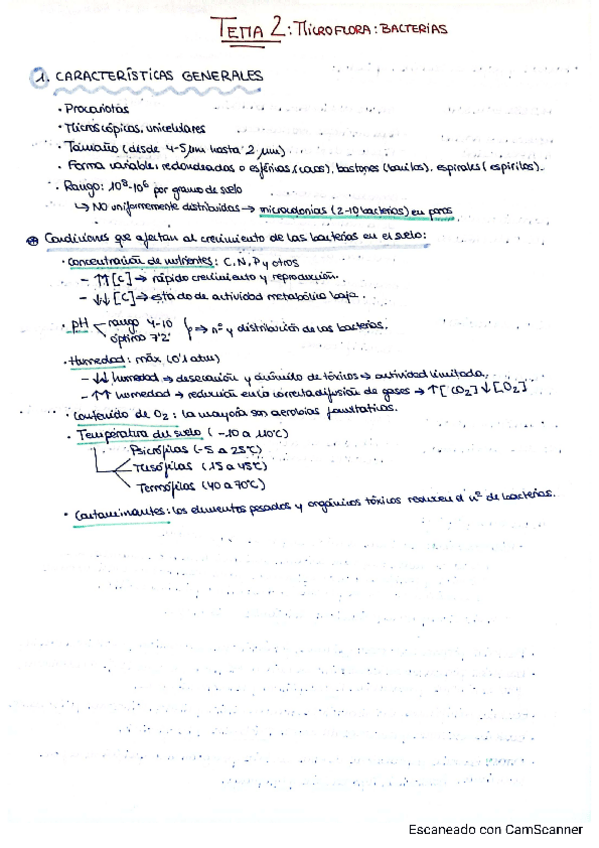 TEMA 2: MICROFLORA: BACTERIAS
1. CARACTERÍSTICAS GENERALES
· Procariotas
· Microscópicas, unicelulares
· Tamaño (desde 4-5 µm hasta 2 µm)
· Forma variable: redondeadas o esféricas (cocos), bastones (bacilos), espirales (espirilos).
· Rango: 10⁸-10⁶ por gramo de suelo
↳ NO uniformemente distribuidas → microcolonias (2-10 bacterias) en poros
⊛ Condiciones que afectan al crecimiento de las bacterias en el suelo:
· Concentración de nutrientes: C, N, P y otros
- ↑↑ [C] → rápido crecimiento y reproducción.
- ↓↓ [C] → estado de actividad metabólica baja.
· pH rango 4-10
óptimo 7'2 → nº y distribución de las bacterias.
· Humedad: máx (0'1 atm)
- ↓↓ humedad → desecación y de tóxicos → actividad limitada.
- ↑↑ humedad → reducción en la correcta difusión de gases → ↑[CO2] ↓[O2]
· Contenido de O2: la mayoría son aerobias facultativas.
· Temperatura del suelo (-10 a 110ºC)
Psicrófilas (-5 a 25ºC)
Mesófilas (15 a 45ºC)
Termófilas (40 a 70ºC)
· Contaminantes: los elementos pesados y orgánicos tóxicos reducen el nº de bacterias.
Escaneado con CamScanner